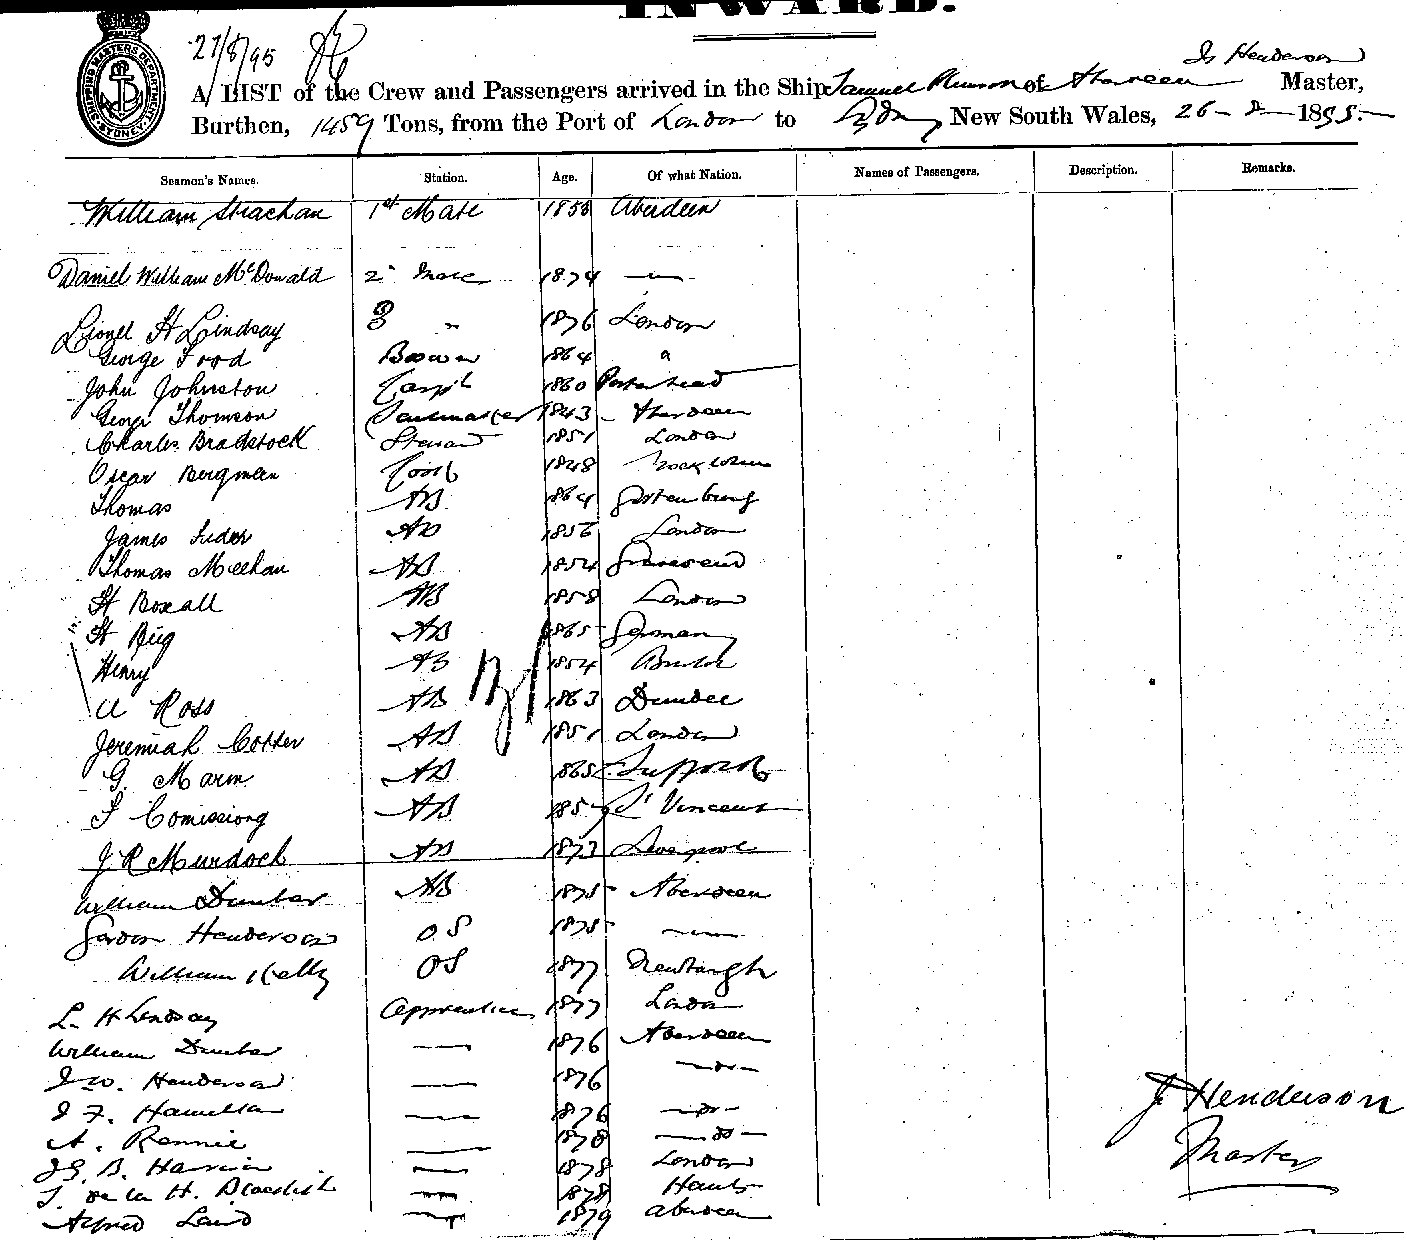 INWARD.
SHIPPING MASTERS DEPARTMENT SYDNEY
27/8/95
Js Henderson
A LIST of the Crew and Passengers arrived in the Ship Samuel Plimsoll of Aberdeen Master,
Burthen, 1459 Tons, from the Port of London to Sydney New South Wales, 26 - 8 - 1895.
Seamen's Names. Station. Age. Of what Nation. Names of Passengers. Description. Remarks.
William Strachan 1st Mate 1858 Aberdeen
Daniel William McDonald 2 Mate 1874 —"—
Lionel H Lindsay 3 " 1876 London
George Food Bosun 1864 "
John Johnston Carp 1860 Peterhead
George Thomson Sailmaker 1843 Aberdeen
Charles Bradstock Steward 1851 London
Oscar Bergman Cook 1848 Stockholm
Thomas AB 1864 Gottenburg
James AB 1856 London
Thomas Meehan AB 1854 Gravesend
H Boxall AB 1858 London
H AB 1865 Germany
Henry AB 1854 Bristol
A Ross AB 1863 Dundee
Jeremiah Cotter AB 1851 London
G. Marm AB 1865 Suffolk
F Comissiong AB 1857 St Vincent
J R Murdoch AB 1873 Liverpool
William Dunbar AB 1875 Aberdeen
Gordon Henderson OS 1875 —"—
William Kelly OS 1877 Newburgh
L. H Lindsay Apprentice 1877 London
William Dunbar — 1876 Aberdeen
J W. Henderson — 1876 — do —
J F. Hamilton — 1876 — do —
A. Rennie — 1878 — do —
J G. B. — 1878 London
J. Henderson
T. de la H. — 1878 Hants
Master
Alfred Laird — 1879 Aberdeen